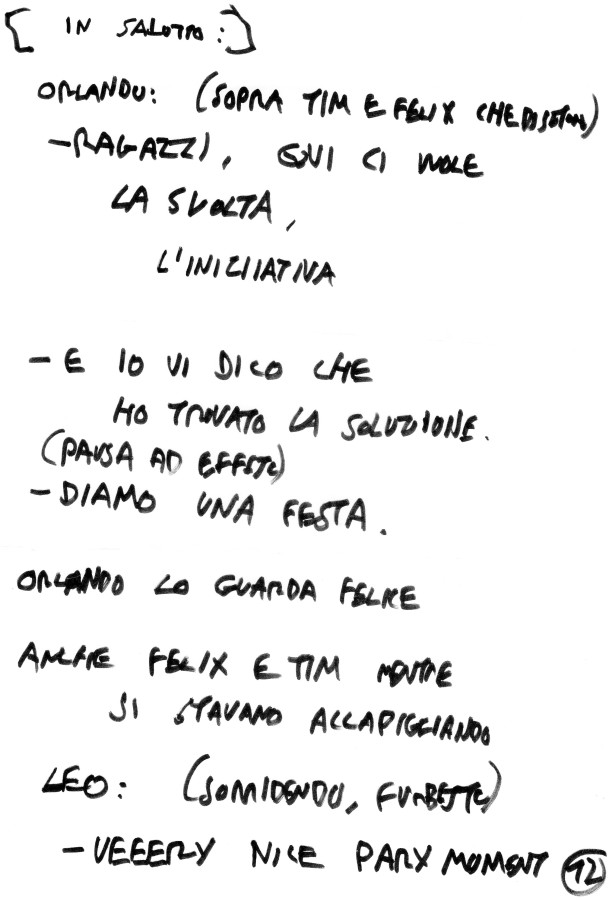 [ IN SALOTTO: ]
ORLANDO: (SOPRA TIM E FELIX CHE DISCUTONO)
-RAGAZZI, QUI CI VUOLE
LA SVOLTA,
L'INIZIIATIVA
- E IO VI DICO CHE
HO TROVATO LA SOLUZIONE.
(PAUSA AD EFFETTO)
- DIAMO UNA FESTA.
ORLANDO LO GUARDA FELICE
ANCHE FELIX E TIM MENTRE
SI STAVANO ALLAPIGLIANDO
LEO: (SORRIDENDO, FURBETTO)
- VEEERY NICE PARX MOMENT 92